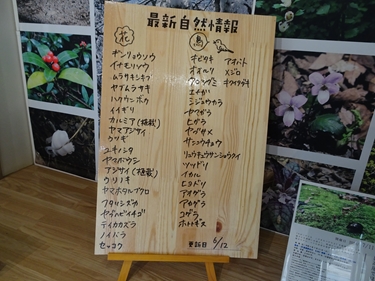 最新自然情報
花
ギンリョウソウ
イナモリソウ
ムラサキシキブ
ヤブムラサキ
ハクウンボク
イイギリ
カルミア(植栽)
ヤマアジサイ
ウツギ
ユキノシタ
ヤマボウシ
アジサイ(植栽)
ウリノキ
ヤマホタルブクロ
フタリシズカ
ヤブヘビイチゴ
テイカカズラ
ノイバラ
セッコク
鳥
キビタキ
オオルリ
クロツグミ
エナガ
シジュウカラ
ヤマガラ
ヒガラ
ヤブサメ
サンコウチョウ
リュウキュウサンショウクイ
ツツドリ
イカル
ヒヨドリ
アオゲラ
アカゲラ
コゲラ
ホトトギス
アオバト
メジロ
キクイタダキ
更新日 6/12